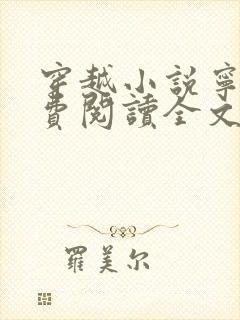 穿越小説寧
費閱讀全文
羅美尔